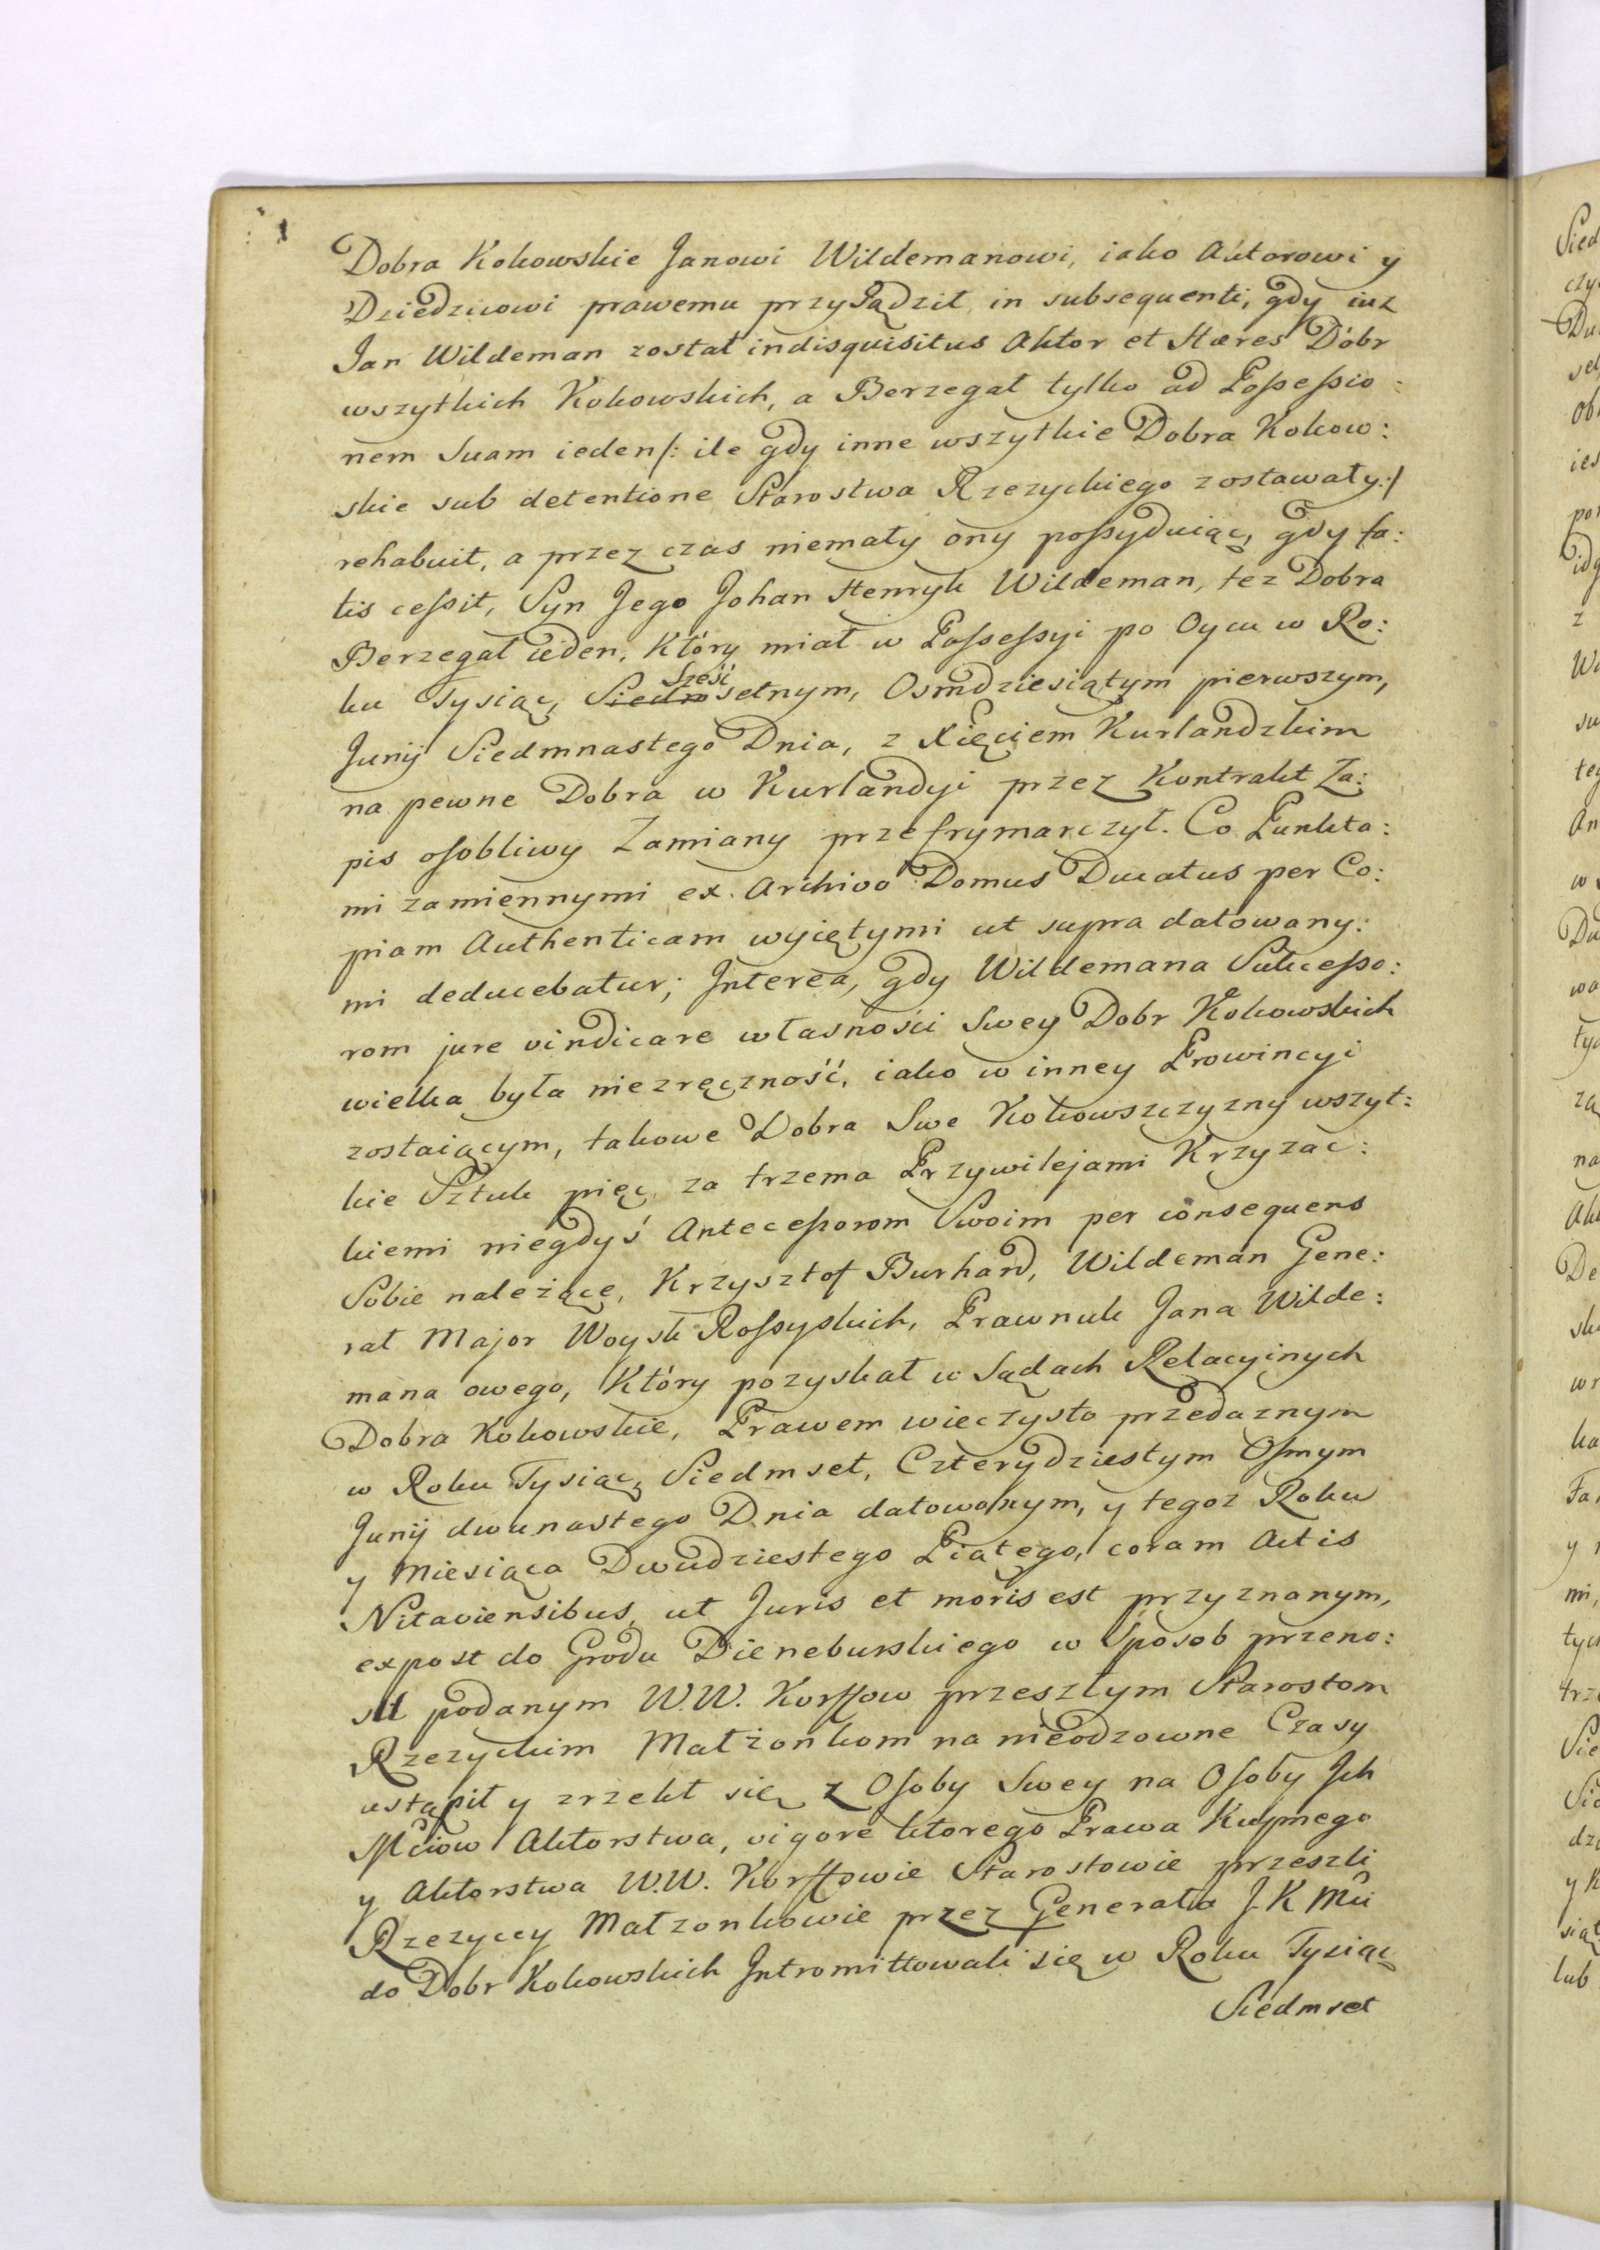 Dobra Kokowskie Janowi Wildemanowi, iako Aktorowi y
Dziedzicowi prawemu przysądził, in subsequenti, gdy iuz
Jan Wildeman został indisquisitus Aktor et Hæres Dóbr
wszytkich Kokowskich, a Berzegal tylko ad Possessio:
nem Suam ieden /: ile gdy inne wszytkie Dobra Kokow:
skie sub detentione Starostwa Rzezyckiego zostawały :/
rehabuit, a przez czas niemały ony possyduiąc, gdy fa:
tis cessit, Syn Jego Johan Henryk Wildeman, tez Dobra
Berzegal ieden, Który miał w Possessyi po Oycu w Ro:
Sześć
ku Tysiąc, Siedmsetnym, Osmdziesiątym pierwszym,
Junij Siedmnastego Dnia, z Xięciem Kurlandzkim
na pewne Dobra w Kurlandyi przez Kontrakt Za:
pis osobliwy Zamiany przefrymarczył. Co Punkta:
mi zamiennymi ex Archivo Domus Ducatus per Co:
piam Authenticam wyiętymi ut supra datowany:
mi deducebatur; Interea, gdy Wildemana Sukcesso:
rom jure vindicare własności Swey Dobr Kokowskich
wielka była niezręczność, iako w inney Prowincyi
zostaiącym, takowe Dobra Swe Kokowszczyzny wszyt:
kie Sztuk pięc za trzema Przywilejami Krzyzac:
kiemi niegdyś Antecessorom Swoim per consequens
Sobie należące, Krzysztof Burhard, Wildeman Gene:
rał Major Woysk Rossyskich, Prawnuk Jana Wilde:
mana owego, Który pozyskał w Sądach Relacyinych
Dobra Kokowskie, Prawem wieczysto przedaznym
w Roku Tysiąc Siedmset, Czterydziestym Osmym
Junij dwunastego Dnia datowanym, y tegoz Roku
y Miesiąca Dwudziestego Piątego, coram Actis
Nitaviensibus, ut Juris et moris est przyznanym,
expost do Grodu Dieneburskiego w Sposob przeno:
su podanym W.W. Korffow przeszłym Starostom
Rzezyckim Małzonkom na nieodzowne Czasy
ustąpił y zrzekł się z Osoby Swey na Osoby Ich
Mciow Aktorstwa, vigore ktorego Prawa Kupnego
y Aktorstwa W.W. Korffowie Starostowie przeszli
Rzezyccy Małzonkowie przez Generała J.K Mci
do Dobr Kokowskich Intromittowali się w Roku Tysiąc
Siedmset